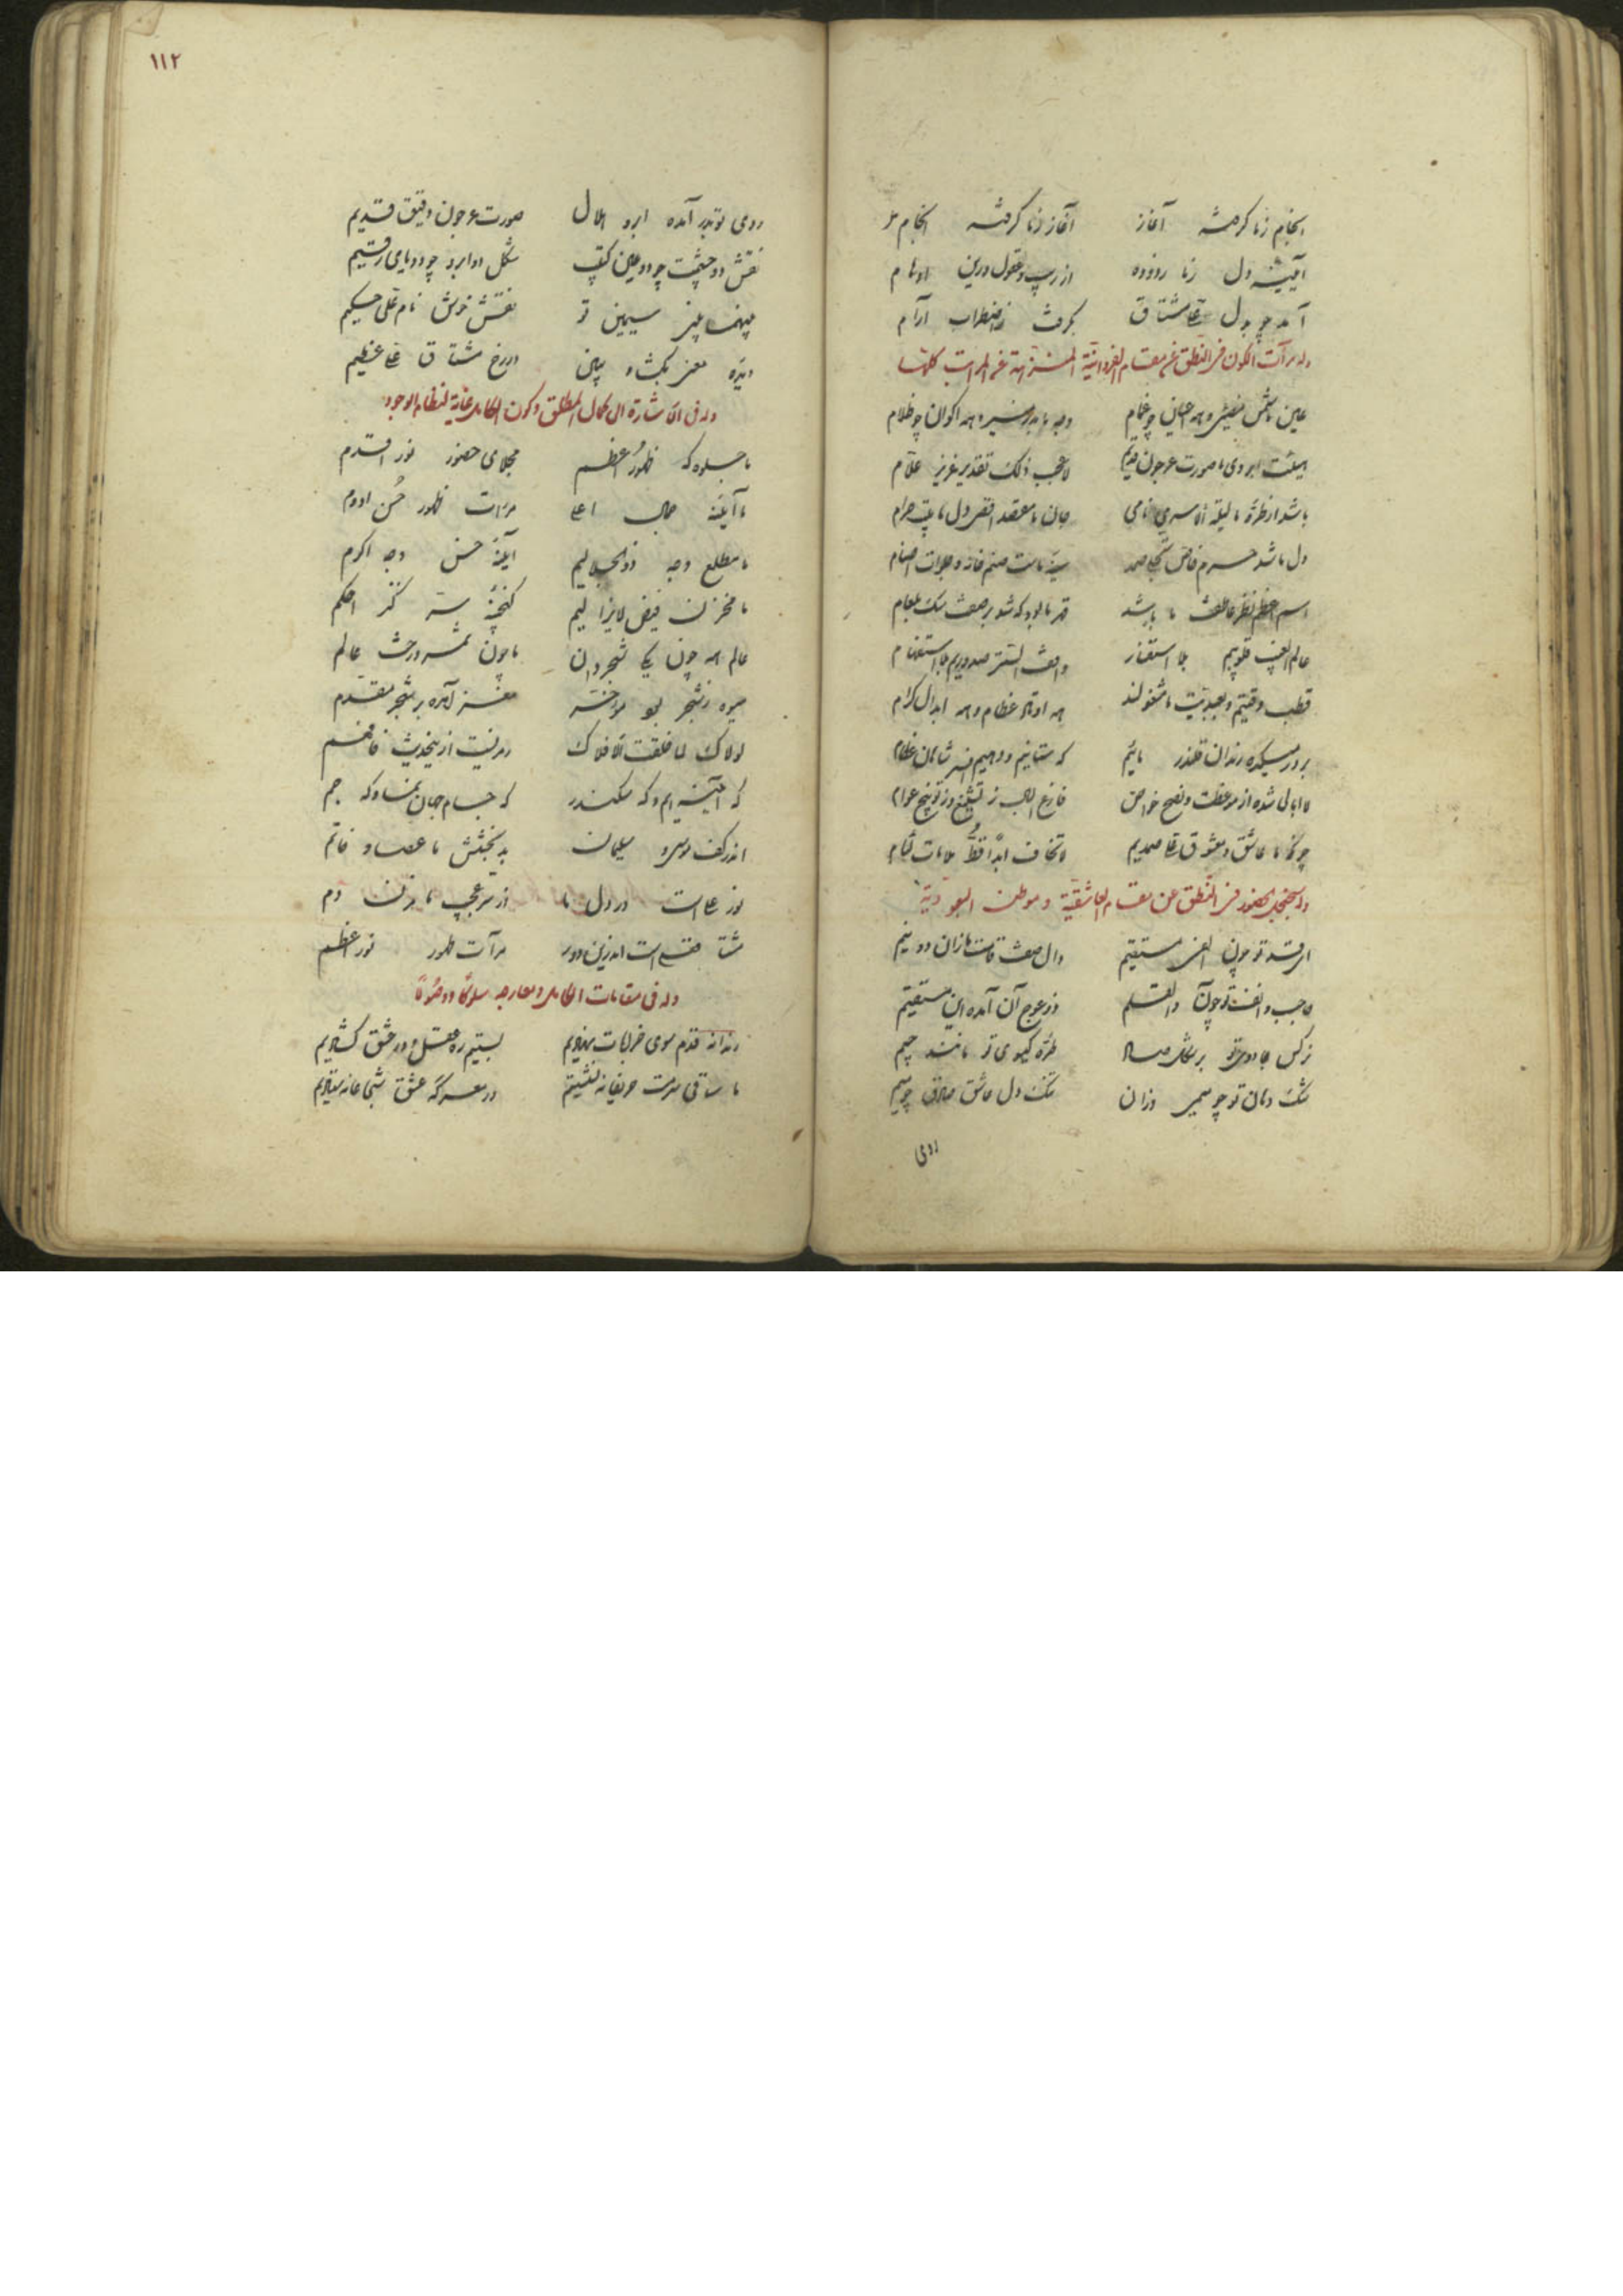 انجام ز ما گرفته آغاز آغاز ز ما گرفته انجام
آیینه دل ز ما زدوده از ریب و عقول و رین اوهام
آمد چو بدل علی مشتاق بگرفت ز اضطراب آرام
وله مرآت الکون فی النطق عن مقام الفردانیة المنزهة عن المراتب کلها
عین ما شمس مضیئی و همه اعیان چو غمام وجه ما بدر منیر و همه اکوان چو ظلام
هیئت ابروی ما صورت عرجون قدیم لا عجب ذلک تقدیر عزیز علام
باشد از طره ما لیلة الاسری نامی جان ما مقعد اقصی دل ما بیت حرام
دل ما شد حرم خاص تجلی صمد سینه ماست صنم خانه و اموات اصنام
اسم اعظم نظر عاطفت ما باشد قهر ما بود که شد بر صفت سگ بلعام
عالم الغیب قلوبیم بلا استفسار واقف السر صدوریم بلا استفهام
قطب وقتیم و بعبدیت ما مشغولند همه اوتاد عظام و همه ابدال کرام
بر در میکده رندان قلندر مائیم که ستانیم و دهیم افسر شاهان عظام
لاابالی شده از موعظت و نصح خواص فارغ البال ز تشنیع و ز توبیخ عوام
چونکه ما عاشق و معشوق علی صمدیم لا نخاف ابدا قط ملامات لئام
وله سجنجل الحضور فی النطق عن مقام العاشقیة و موطن العبودیة
ای قد تو چون الف مستقیم دال صفت قامت ما زان دو نیم
حاجب و انفت چون ن والقلم ذی عوج آن آمده این مستقیم
نرگس جادوی تو بر شکل صاد طره گیسوی تو مانند جیم
تنگ دهان تو چو میم و ازان تنگ دل عاشق صادق چو میم
روی
۱۱۲
روی تو بدر آمده ابرو هلال صورت عرجون دقیق قدیم
نقش دو چشمت چو دو عین کتب شکل دو ابرو چو دو یای رقیم
صفحه سیمین تو نقش خوش نام علی حکیم
دیده معنی بگشا و ببین در رخ مشتاق علی عظیم
وله فی الاشارة الی کمال المطلق و کون الکامل غایة لنظام الوجود
ما جلوه گه ظهور اعظم مجلای حضور نور اقدم
ما آینه جمال اعلی مرآت ظهور حسن ادوم
ما مطلع وجه ذوالجلالیم آینه حسن وجه اکرم
ما مخزن فیض لایزالیم گنجینه سر کنز احکم
عالم همه چون یکی شجر دان ما چون ثمره درخت عالم
میوه ز شجر بود مؤخر معنی آمده بر شجر مقدم
لولاک لما خلقت الافلاک رمزیست ازین حدیث فافهم
گه آینه ایم و گه سکندر گه جام جهان نما و گه جم
اندر کف موسی و سلیمان بد بخشش ما عصا و خاتم
نور علی است در دل ما از سر عجب ما مزن دم
مشتاق علی است اندرین دور مرآت ظهور نور اعظم
وله فی مقامات الکامل و معارجه سلوکا و وصولا
رندانه قدم سوی خرابات نهادیم بستیم ره عقل و در عشق گشادیم
با ساقی سرمست حریفانه نشستیم در معرکه عشق شجاعانه ستادیم